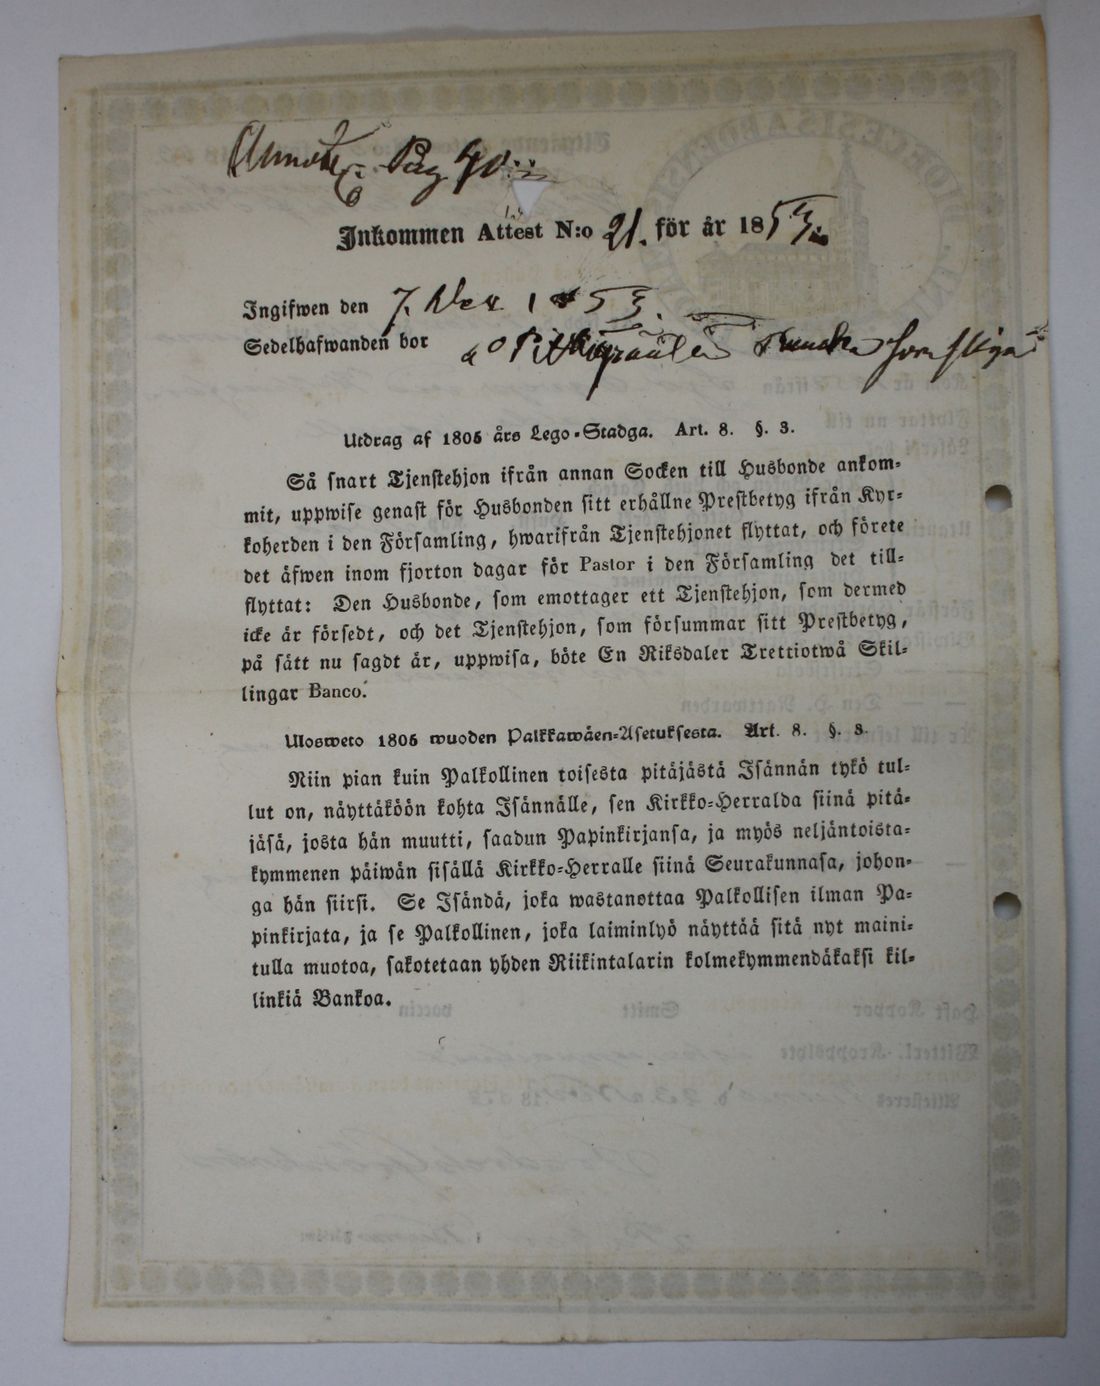 Pag 90
Inkommen Attest N:o 21. för år 1853.
Ingifwen den 7. 1853.
Sedelhafwanden bor
Utdrag af 1805 års Lego-Stadga. Art. 8. §. 3.
Så snart Tjenstehjon ifrån annan Socken till Husbonde ankom-
mit, uppwise genast för Husbonden sitt erhållne Prestbetyg ifrån Kyr-
koherden i den Församling, hwarifrån Tjenstehjonet flyttat, och förete
det äfwen inom fjorton dagar för Pastor i den Församling det till-
flyttat: Den Husbonde, som emottager ett Tjenstehjon, som dermed
icke är försedt, och det Tjenstehjon, som försummar sitt Prestbetyg,
på sätt nu sagdt är, uppwisa, böte En Riksdaler Trettiotwå Skil-
lingar Banco.
Ulosweto 1805 wuoden Palkkawäen-Asetuksesta. Art. 8. §. 3.
Niin pian kuin Palkollinen toisesta pitäjästä Isännän tykö tul-
lut on, näyttäköön kohta Isännälle, sen Kirkko-Herralda siinä pitä-
jäsä, josta hän muutti, saadun Papinkirjansa, ja myös neljäntoista-
kymmenen päiwän sisällä Kirkko-Herralle siinä Seurakunnasa, johon-
ga hän siirsi. Se Isändä, joka wastanottaa Palkollisen ilman Pa-
pinkirjata, ja se Palkollinen, joka laiminlyö näyttää sitä nyt maini-
tulla muotoa, sakotetaan yhden Riikintalarin kolmekymmendäkaksi kil-
linkiä Bankoa.